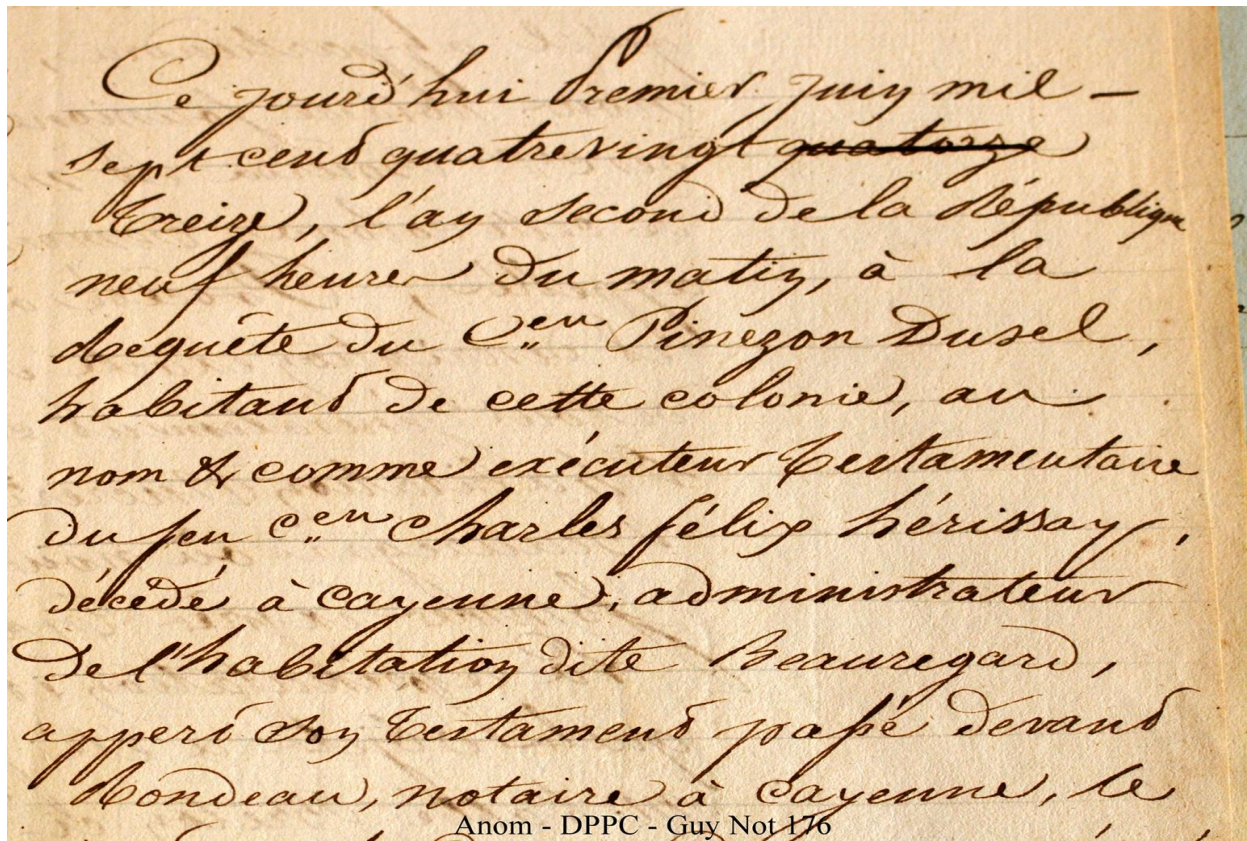 Ce jourd'hui Premier juin mil –
sept cent quatrevingt quatorze
treize, l'an second de la République
neuf heures du matin, à la
Requête du C.en Pinezon Dusel,
habitant de cette colonie, au
nom & comme exécuteur testamentaire
du feu c.en Charles félix hérissay,
décédé à Cayenne, administrateur
De l'habitation dite Beauregard,
appert son testament passé devant
Rondeau, notaire à Cayenne, le
Anom - DPPC - Guy Not 176